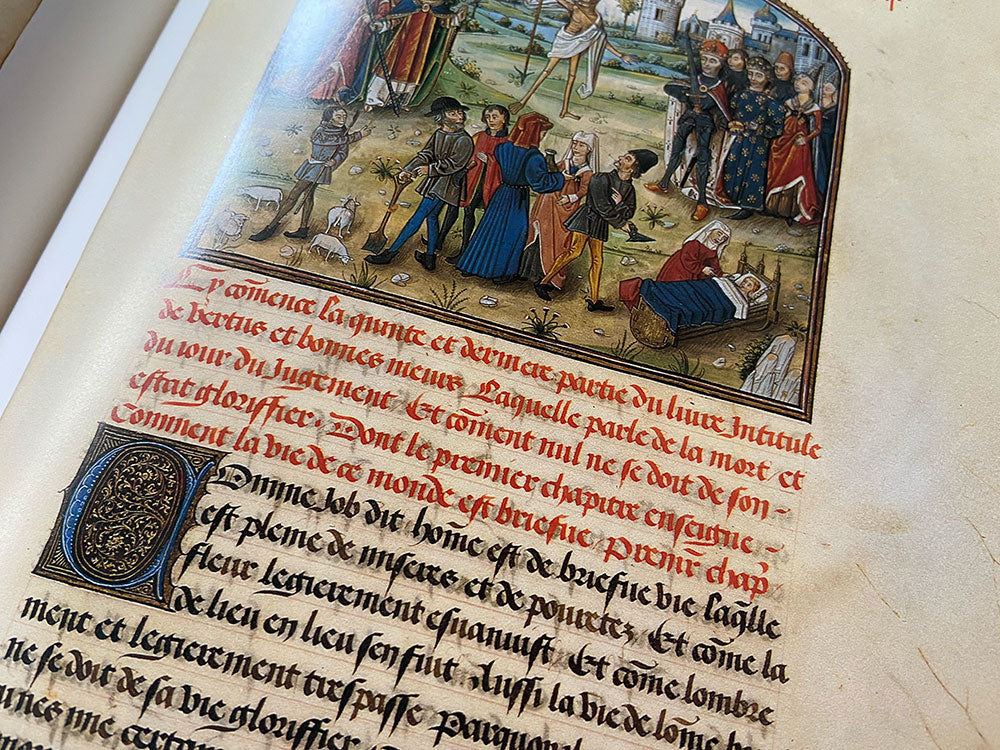 Cy cōmence la quinte et derniere partie du liure Intitule
de vertus et bonnes meurs Laquelle parle de la mort et
du iour du Jugement Et cōment nul ne se doit de son-
estat gloriffier. Dont le premier chapitre enseigne-
Comment la vie de ce monde est briefue Premīr chap̄.
Omme Job dit hōme est de briefue vie laq̄lle
est pleine de miseres et de pouretez Et cōme la
fleur legierement esuanuist Et cōme lombre
de lieu en lieu sen fuit Aussi la vie de lōme
ment et legierement trespasse Parquoy
ne se doit de sa vie gloriffier
unes une certam